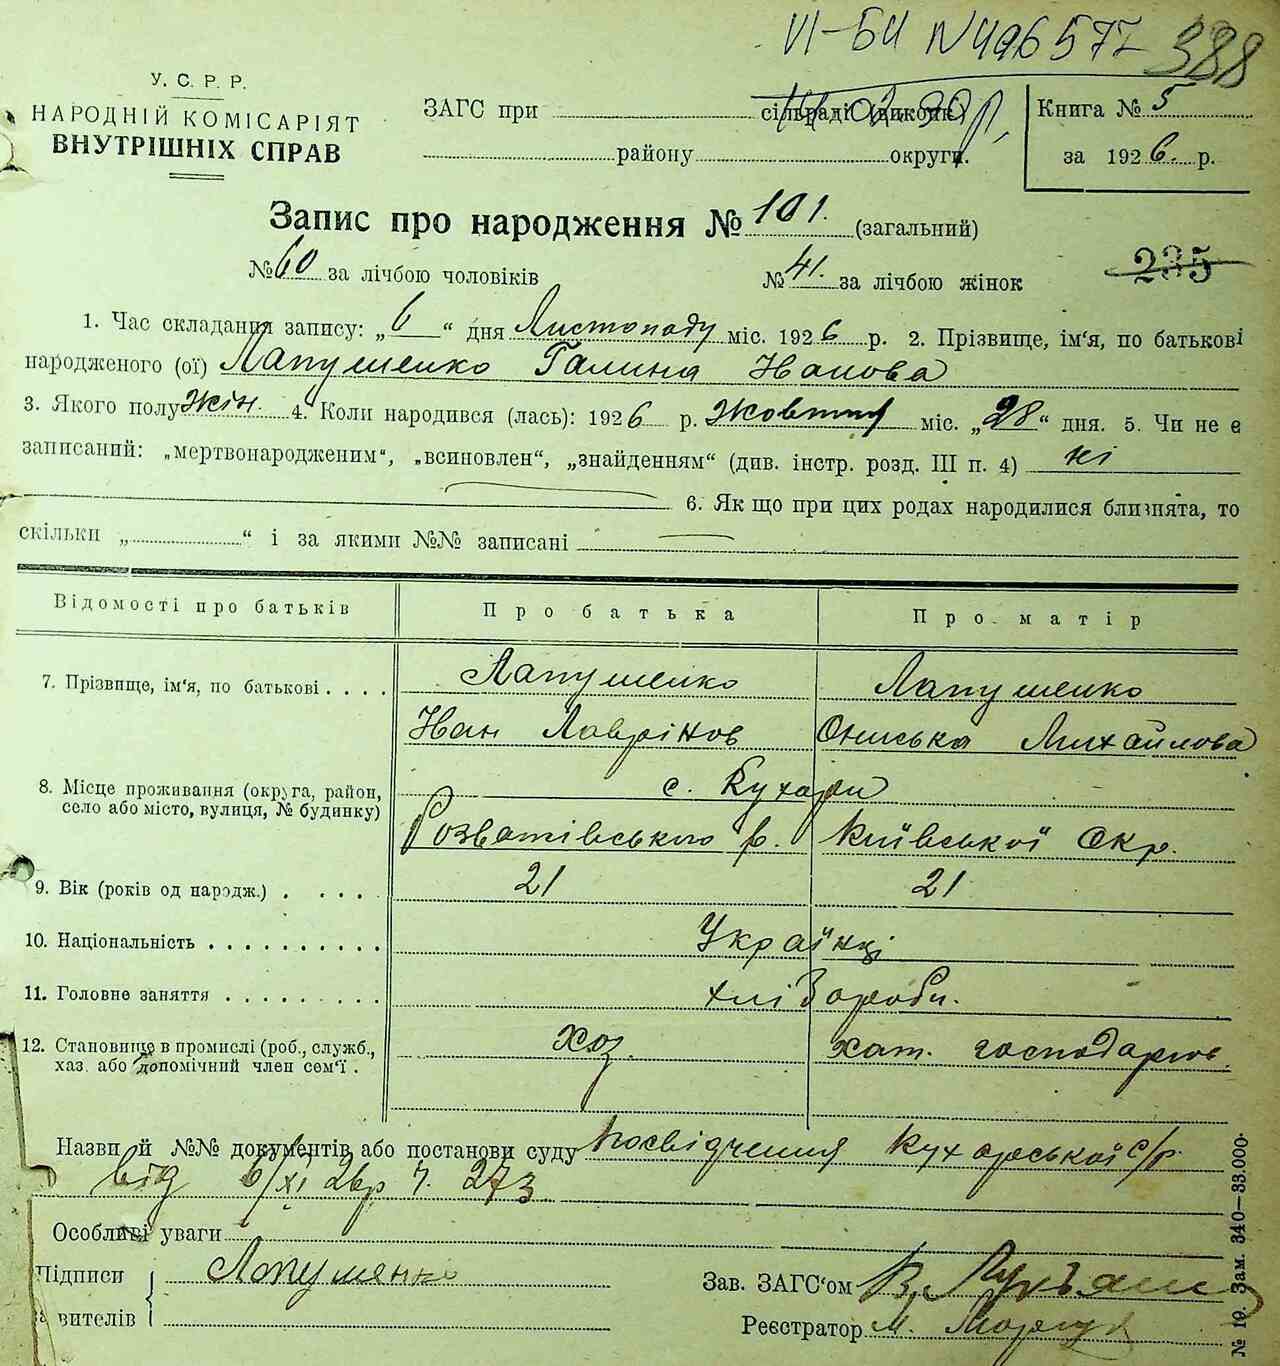 VI-БК N 496577 388
У. С. Р. Р.
НАРОДНІЙ КОМІСАРІЯТ
ВНУТРІШНІХ СПРАВ
ЗАГС при сільраді (виконк)
району округи.
Книга № 5
за 1926 р.
Запис про народження № 101. (загальний)
№ 60 за лічбою чоловіків № 41. за лічбою жінок
235
1. Час складання запису: „6“ дня Листопаду міс. 1926 р. 2. Прізвище, ім‘я, по батькові
народженого (ої) Лапушенко Галина Іванова
3. Якого полу жін. 4. Коли народився (лась): 1926 р. Жовтня міс. „28“ дня. 5. Чи не є
записаний: „мертвонародженим“, „всиновлен“, „знайденням“ (див. інстр. розд. III п. 4) ні
6. Як що при цих родах народилися близнята, то
скільки „ “ і за якими №№ записані
Відомості про батьків Про батька Про матір
7. Прізвище, ім‘я, по батькові Лапушенко Лапушенко
Іван Лаврінов Ониська Михайлова
8. Місце проживання (округа, район, село або місто, вулиця, № будинку) с. Кухари
Розватівського р. Київської Окр.
9. Вік (років од народж.) 21 21
10. Національність Українці
11. Головне заняття хлібороби.
12. Становище в промислі (роб., служб., хаз. або допомічний член сем‘ї. хоз. хат. господарює
Назви й №№ документів або постанови суду посвідчення Кухарської с/р.
від 6/XI 26 р ч. 273
Особливі уваги
Підписи Лапушенко
Зав. ЗАГС‘ом
Реєстратор М.
№ 19. Зам. 340—33.000.